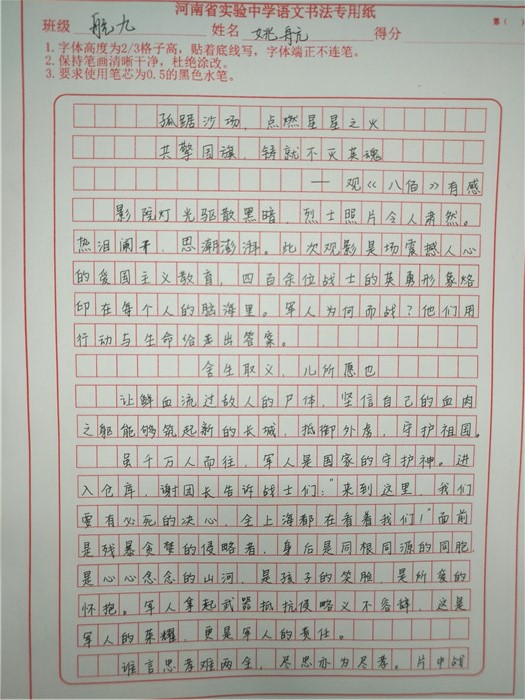 河南省实验中学语文书法专用纸
班级 航九 姓名 姚航 得分 第( )
1. 字体高度为2/3格子高，贴着底线写，字体端正不连笔。
2. 保持笔画清晰干净，杜绝涂改。
3. 要求使用笔芯为0.5的黑色水笔。
孤踞沙场，点燃星星之火
共擎国旗，铸就不灭英魂
——观《八佰》有感
影院灯光驱散黑暗，烈士照片令人肃然。
热泪阑干，思潮澎湃。此次观影是场震撼人心
的爱国主义教育，四百余位战士的英勇形象烙
印在每个人的脑海里。军人为何而战？他们用
行动与生命给出答案。
舍生取义，儿所愿也
让鲜血流过敌人的尸体，坚信自己的血肉
之躯能够筑起新的长城，抵御外虏，守护祖国。
虽千万人而往，军人是国家的守护神。进
入仓库，谢团长告诉战士们：“来到这里，我们
要有必死的决心，全上海都在看着我们！”面前
是残暴贪婪的侵略者，身后是同根同源的同胞，
是心心念念的山河，是孩子的笑脸，是所爱的
怀抱。军人拿起武器抵抗侵略义不容辞，这是
军人的荣耀，更是军人的责任。
谁言忠孝难两全，尽忠亦为尽孝。片中战